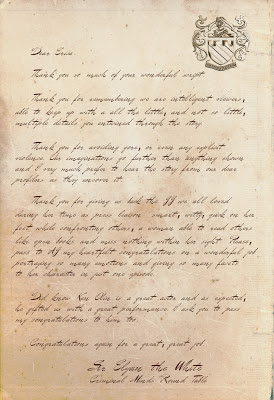 Dear Erica
Thank you so much of your wonderful script.
Thank you for remembering we are intelligent viewers,
able to keep up with a all the little, and not so little,
multiple details you entwined through the story.
Thank you for avoiding gore, or even any explicit
violence. Our imaginations go further than anything shown
and I very much prefer to hear the story from our dear
profilers as they uncover it.
Thank you for giving us back the JJ we all loved
during her time as press liaison: smart, witty, quick on her
feet while confronting others, a woman able to read others
like open books and miss nothing within her sight. Please,
pass to AJ my heartfelt congratulations on a wonderful job
portraying so many emotions and giving so many facets
to her character in just one episode.
Did know Kim Olin is a great actor and as expected,
he gifted us with a great performance. I ask you to pass
my congratulations to him too.
Congratulations again for a great, great job.
Sir Elyan the White
Criminal Minds' Round Table